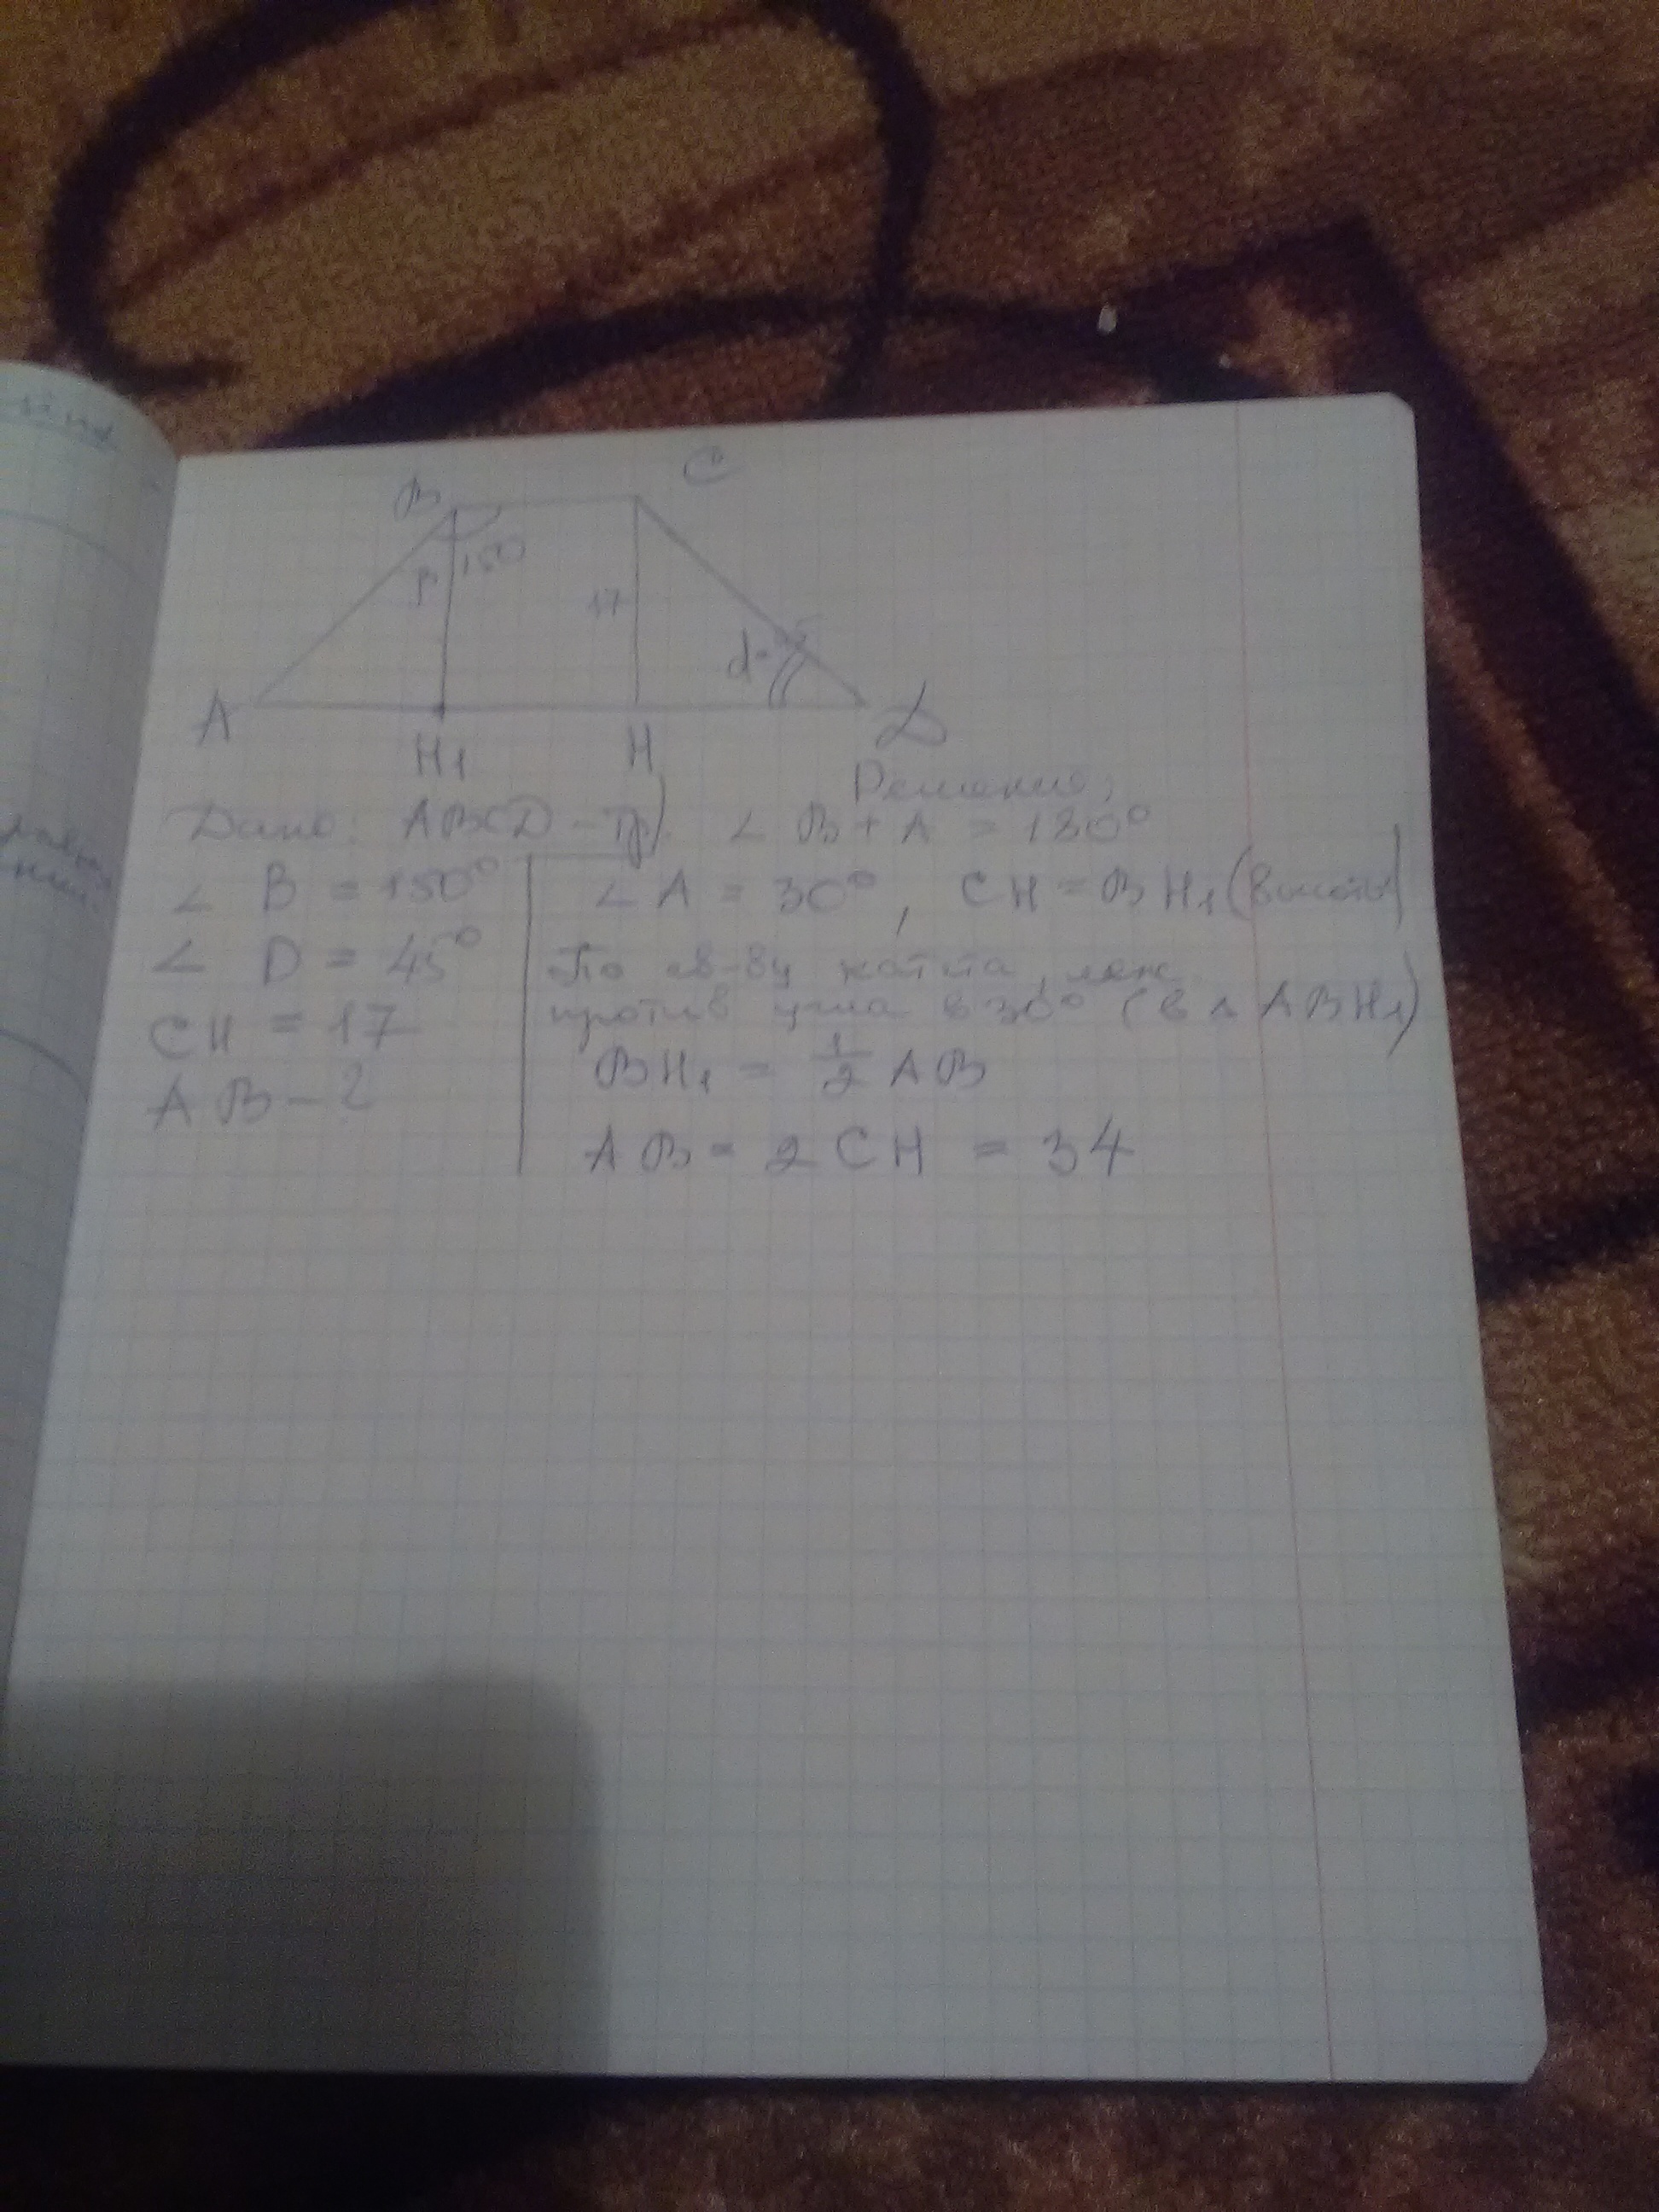 B
C
β
150
17
d=45
A
H1
H
D
Решение;
Дано: ABCD - тр
∠ B + A = 180°
∠ B = 150°
∠ A = 30°, CH = BH1 (высоты)
∠ D = 45°
По св-ву катета, леж
против угла в 30° (в △ ABH1)
CH = 17
BH1 = 1/2 AB
AB - ?
AB = 2CH = 34